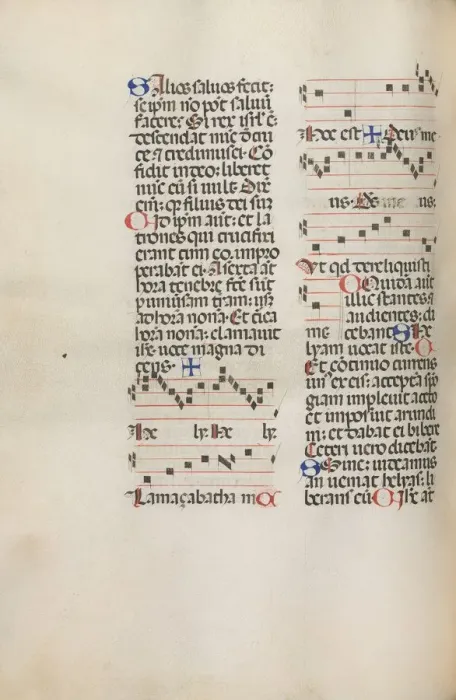 S Alios salvos fecit:
seip̄m nō pōt salvū
facere: Si rex isrl̄ ē:
descendat nūc d̄ cru
ce ⁊ credimus ei. Cō
fidit in deo: liberet
nūc eū si vult. Dix̄
em̄: qꝛ filius dei sum
C Id ip̄m aūt: et la
trones qui crucifixi
erant cum eo, impro
perabāt ei. A sexta aūt
hora tenebre fc̄e sūt
ꝑ univ̄sam t̄ram: usqꝫ
ad hora nona. Et circa
hora nona: clamavit
iħs voce magna di
cens. ✠
He ly. He ly.
Lamaçabatha ni C
Hoc est ✠ Deus me
us. Ds̄ me us.
Ut qd̄ dereliquisti
me C Quidā aūt
illic stantes ⁊
audientes: di
cebant S He
lyam vocat iste. C
Et cōtinuo currens
un̄ ex eis: acceptā spō
giam implevit aceto
et imposuit arundi
ni: et dabat ei bibere
Ceteri vero dicebāt
S Sine: videamus
an veniat helyas: li
berans eū C Iħs aūt